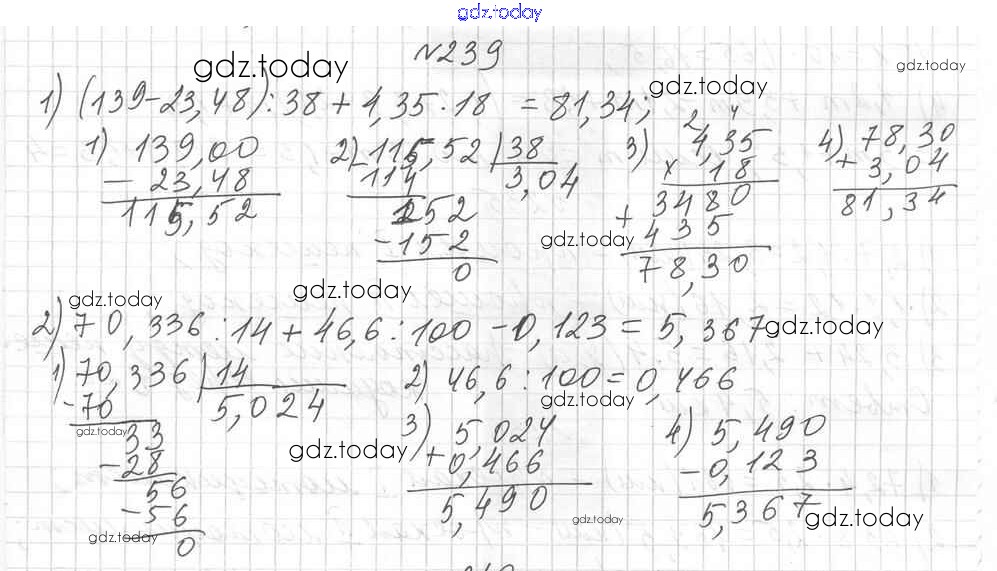 gdz.today
№239
gdz.today
gdz.today
gdz.today
1) (139-23,48):38 + 4,35·18 = 81,34;
1) 139,00
- 23,48
115,52
2) 115,52 | 38
- 114
3,04
152
- 152
0
3) 4,35
2 4
x 18
3480
+ 435
78,30
4) 78,30
+ 3,04
81,34
gdz.today
gdz.today
gdz.today
2) 70,336 : 14 + 46,6 : 100 - 0,123 = 5,367
gdz.today
1) 70,336 | 14
- 70
5,024
gdz.today
33
- 28
56
- 56
0
gdz.today
2) 46,6 : 100 = 0,466
gdz.today
gdz.today
3) 5,024
+ 0,466
5,490
gdz.today
4) 5,490
- 0,123
5,367
gdz.today